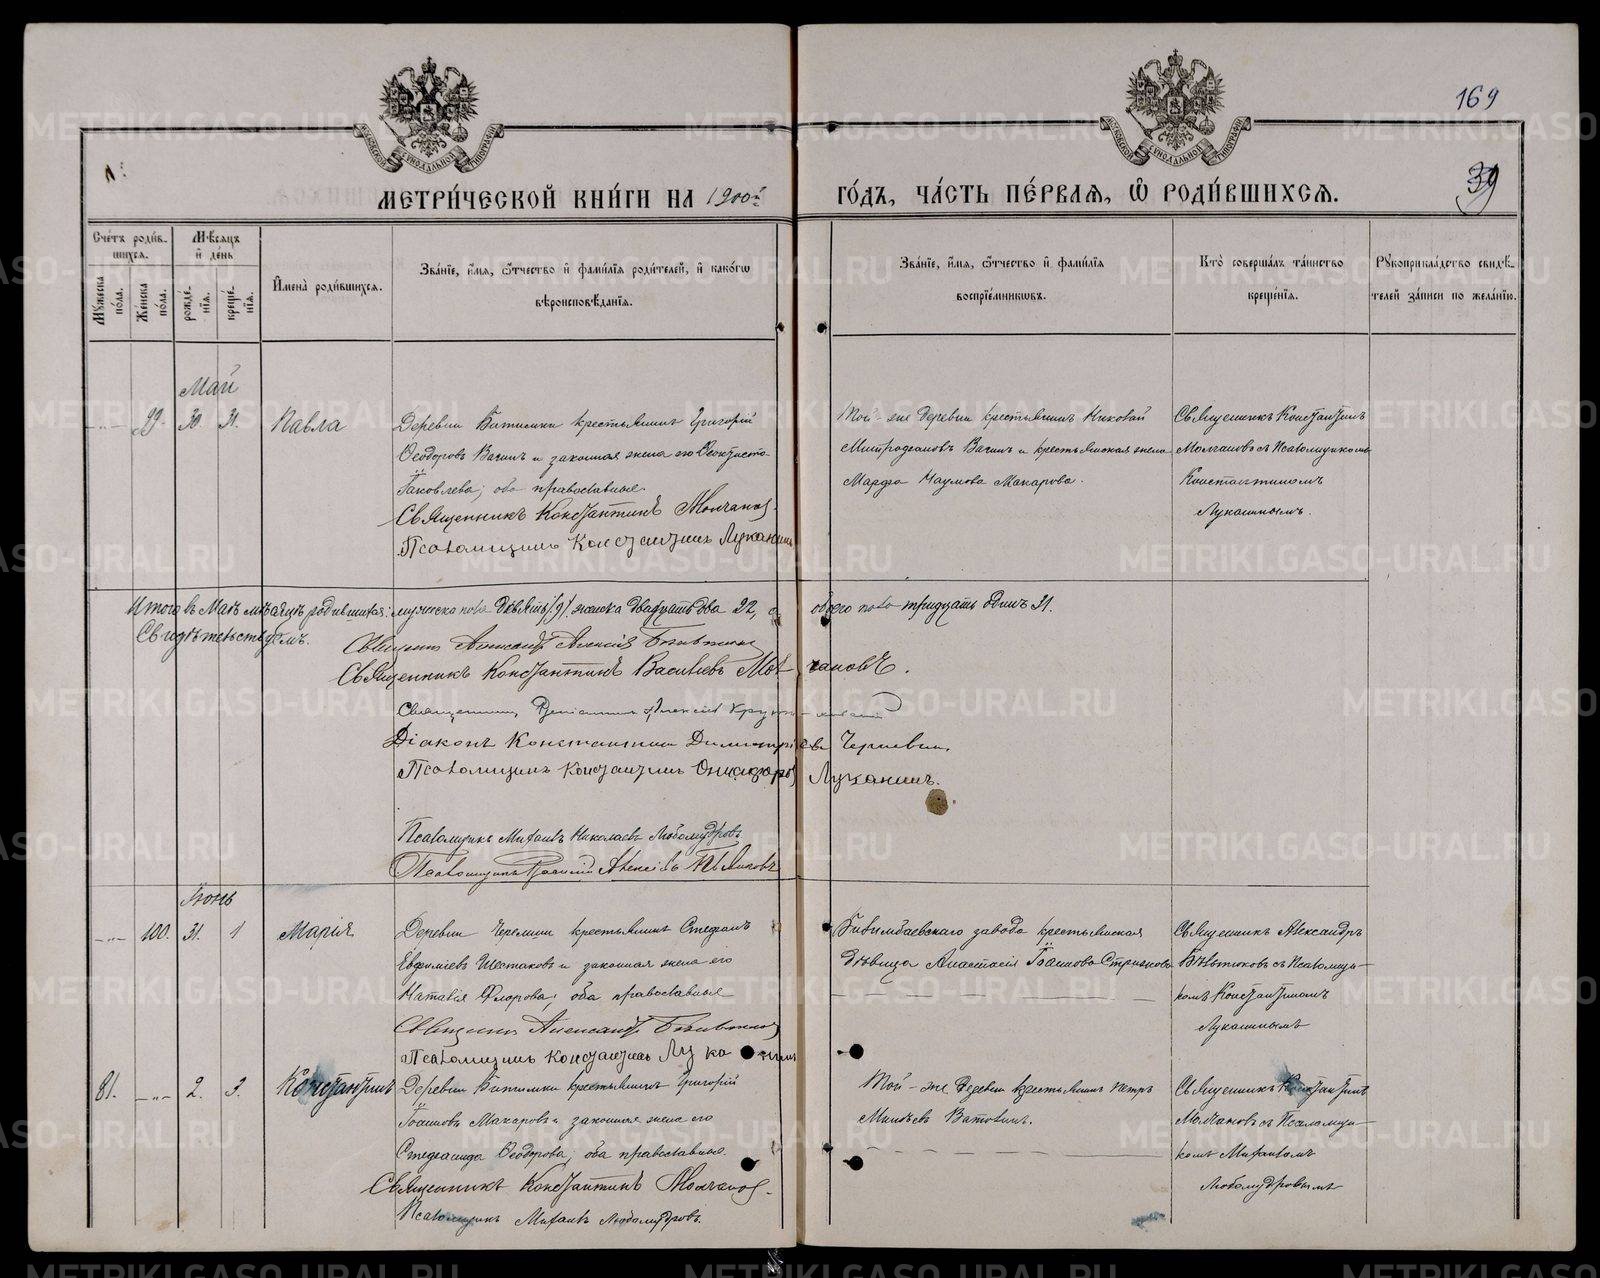 169
39
МЕТРИ́ЧЕСКОЙ КНИ́ГИ НА 1900й ГО́ДЪ, ЧА́СТЬ ПЕ́РВАЯ, Ѡ РОДИ́ВШИХСЯ.
Сче́тъ роди́в-
шихся.
Му́жеска по́ла.
Же́нска по́ла.
Мѣ́сяцъ и҆ де́нь
рожде́-
нїя.
креще́-
нїя.
И҆мена̀ роди́вшихся.
Зва́нїе, и҆́мя, ѻ҆́тчество и҆ фами́лїя роди́телей, и҆ како́гѡ
вѣроисповѣ́данїя.
Зва́нїе, и҆́мя, ѻ҆́тчество и҆ фами́лїя
воспрїе́мникѡвъ.
Кто̀ соверша́лъ та́инство
креще́нїя.
Рꙋкоприкла́дство свидѣ́-
телей за́писи по жела́нїю.
Май
99. 30. 31. Павла
Деревни Битимки крестьянинъ Григорій
Ѳеодоровъ Вагинъ и законная жена его Ѳеоктиста
Іаковлева; оба православные.
Священникъ Константинъ Молчанов.
Псаломщикъ Константинъ Луканинъ
Той-же деревни крестьянинъ Николай
Митрофановъ Вагинъ и крестьянская жена
Марфа Наумова Макарова.
Священникъ Константинъ
Молчановъ съ Псаломщикомъ
Константиномъ
Луканинымъ.
Итого въ Маѣ мѣсяцѣ родившихся: мужеска пола девять /9/. женска двадцать два 22, а обоего пола тридцать одинъ 31.
Свидѣтельствуемъ.
Священникъ Константинъ Васильевъ Молчановъ.
Діаконъ Константинъ Димитріевъ
Псаломщикъ Константинъ Луканинъ.
Псаломщикъ Михаилъ Николаевъ Любомудровъ
Псаломщикъ Алексіевъ
Іюнь
100. 31. 1 Марія
Деревни Черемши крестьянинъ Стефанъ
Евфиміевъ Шестаковъ и законная жена его
Наталія Флорова; оба православные
Священникъ Александръ
Псаломщикъ Константинъ Луканинъ
Билимбаевскаго завода крестьянская
дѣвица Анастасія Іоаннова Стрижкова
Священникъ Александръ
съ Псаломщи-
комъ Константиномъ
Луканинымъ
81. 2. 3. Константинъ
Деревни Битимки крестьянинъ Григорій
Іоанновъ Макаровъ и законная жена его
Стефанида Ѳеодорова; оба православные.
Священникъ Константинъ Молчанов.
Псаломщикъ Михаилъ Любомудровъ.
Той-же деревни крестьянинъ Петръ
Ватолинъ.
Священникъ Константинъ
Молчановъ съ Псаломщи-
комъ Михаиломъ
Любомудровымъ
METRIKI.GASO-URAL.RU